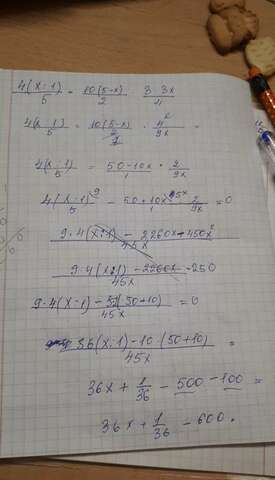 4(x:1)/5 = 10(5-x)/2 3·3x/4
4(x:1)/5 = 10(5-x)/2 · 4²/9x =
4(x:1)/5 = 50-10x/1 · 2/9x
4(x:1)/5 - 50+10x/1 · 2/9x = 0
9·4(x:1) - 2260x+450x²/45x
9·4(x:1) - 2260x-250/45x
9·4(x-1) - (50+10)/45x = 0
36(x:1)-10(50+10)/45x =
36x + 1/36 - 500 - 100 =
36x + 1/36 - 600.